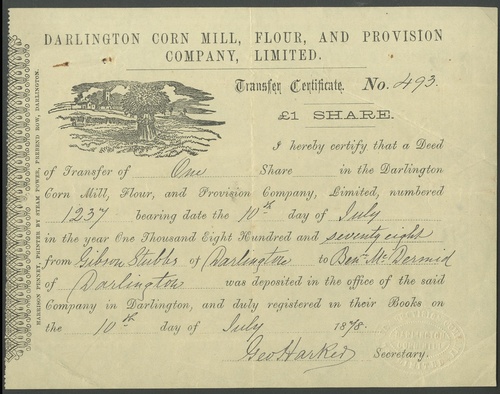 DARLINGTON CORN MILL, FLOUR, AND PROVISION
COMPANY, LIMITED.
Transfer Certificate. No. 493.
£1 SHARE.
I hereby certify that a Deed
of Transfer of One Share in the Darlington
Corn Mill, Flour, and Provision Company, Limited, numbered
1237 bearing date the 10th day of July
in the year One Thousand Eight Hundred and seventy eight
from Gibson Stubbs of Darlington to Benn McDermid
of Darlington was deposited in the office of the said
Company in Darlington, and duly registered in their Books on
the 10th day of July 1878.
Geo Harker Secretary.
HARRISON PENNEY, PRINTER BY STEAM POWER, PREBEND ROW, DARLINGTON.